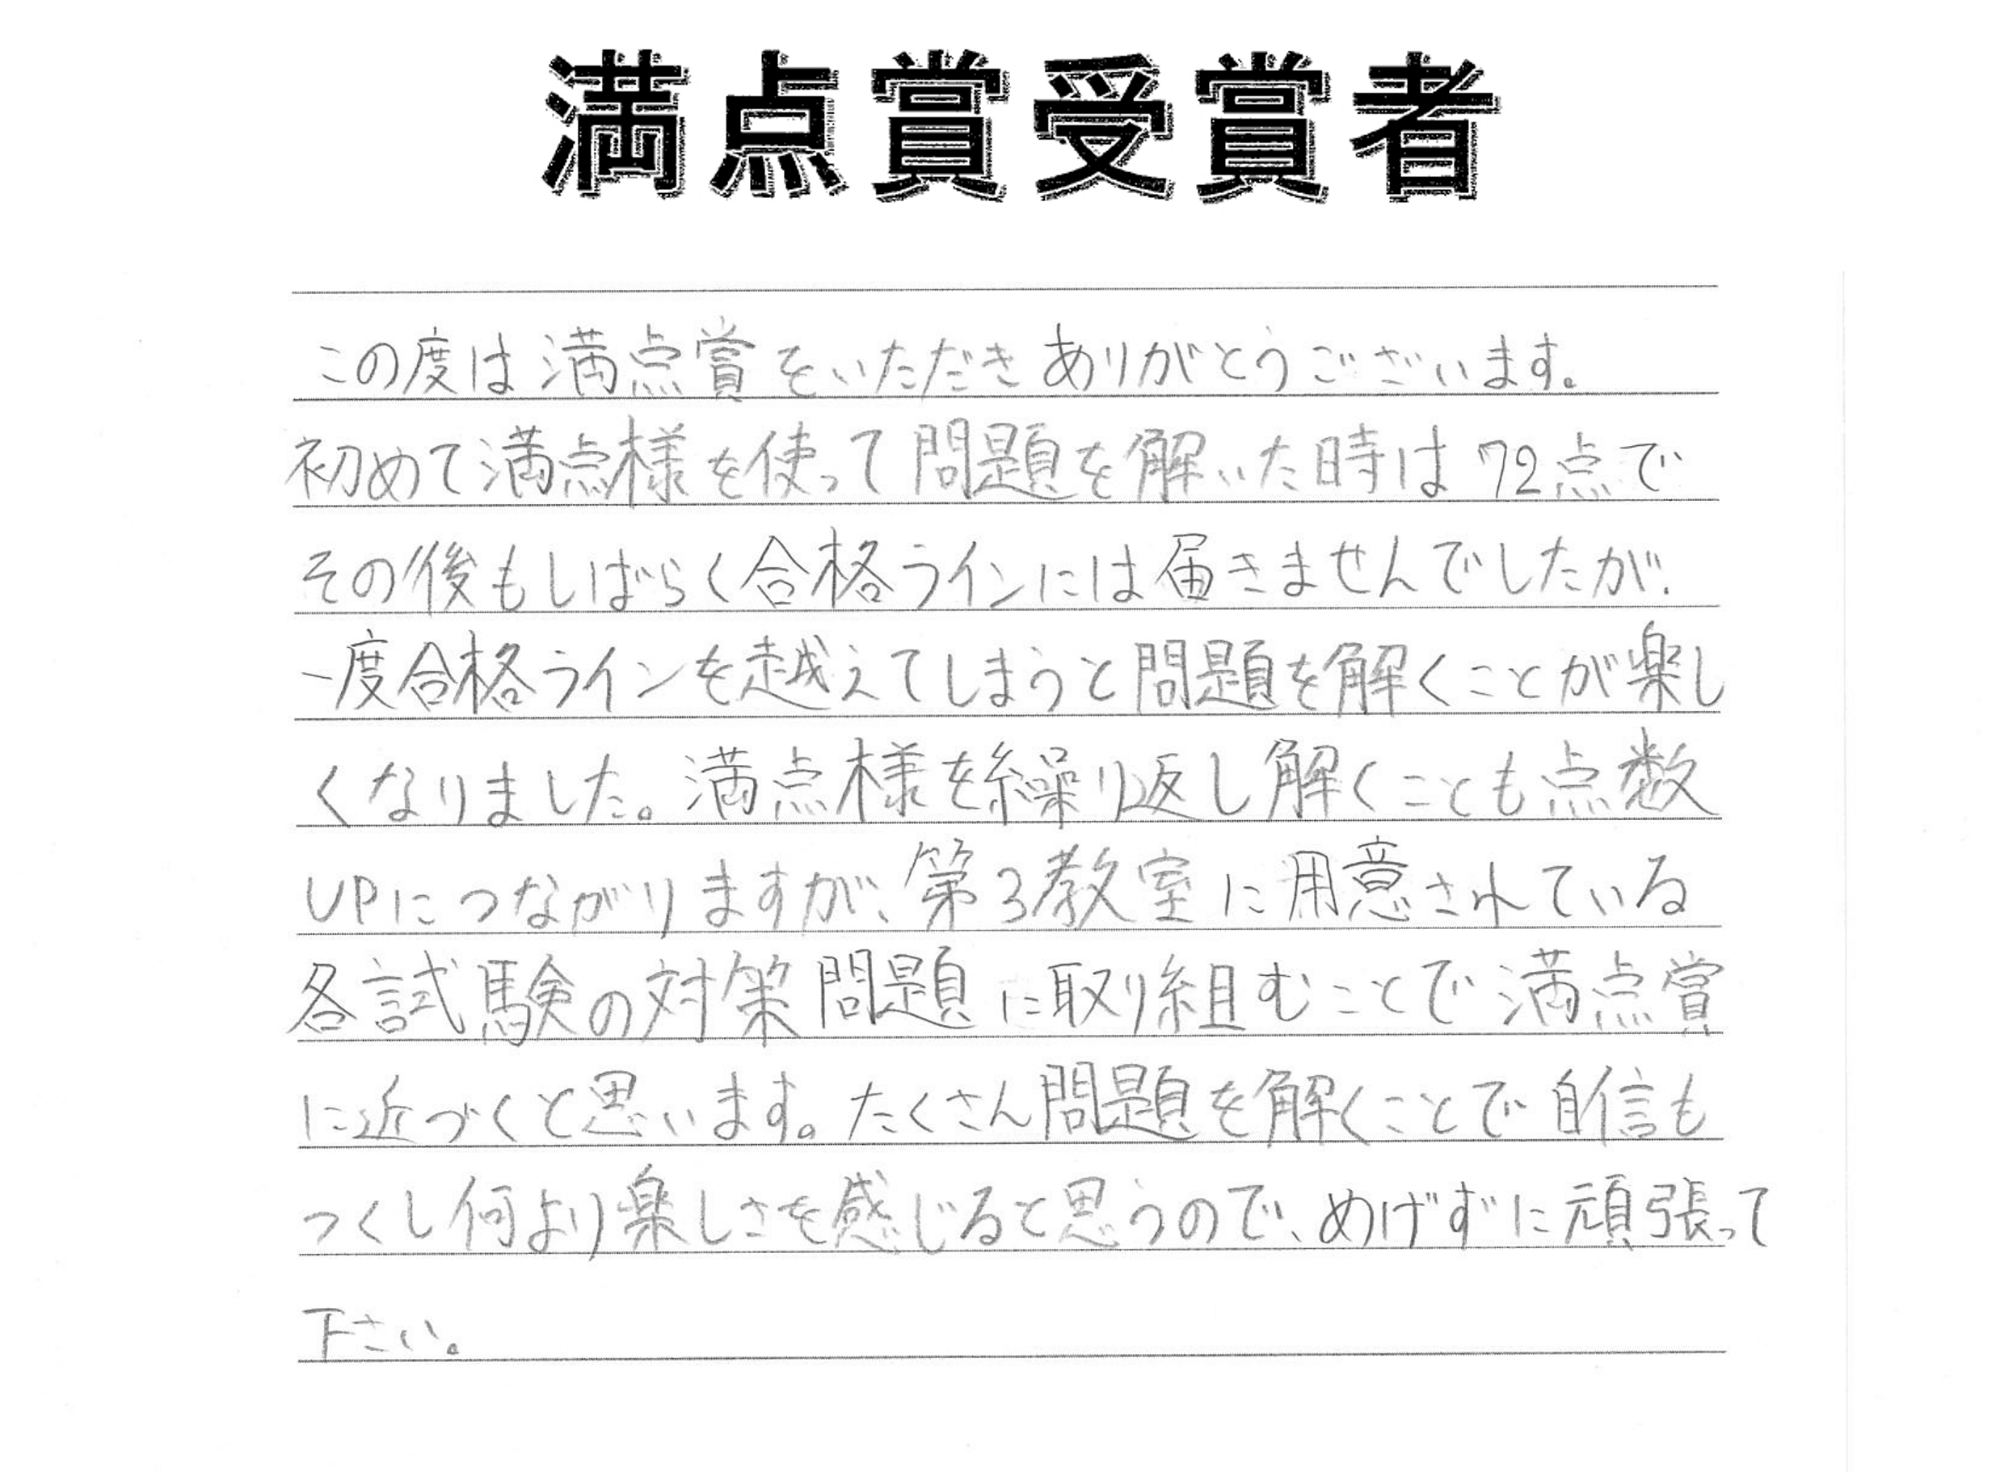 満点賞受賞者
この度は満点賞をいただきありがとうございます。
初めて満点様を使って問題を解いた時は72点で
その後もしばらく合格ラインには届きませんでしたが、
一度合格ラインを越えてしまうと問題を解くことが楽し
くなりました。満点様を繰り返し解くことも点数
UPにつながりますが、第3教室に用意されている
各試験の対策問題に取り組むことで満点賞
に近づくと思います。たくさん問題を解くことで自信も
つくし何より楽しさを感じると思うので、めげずに頑張って
下さい。